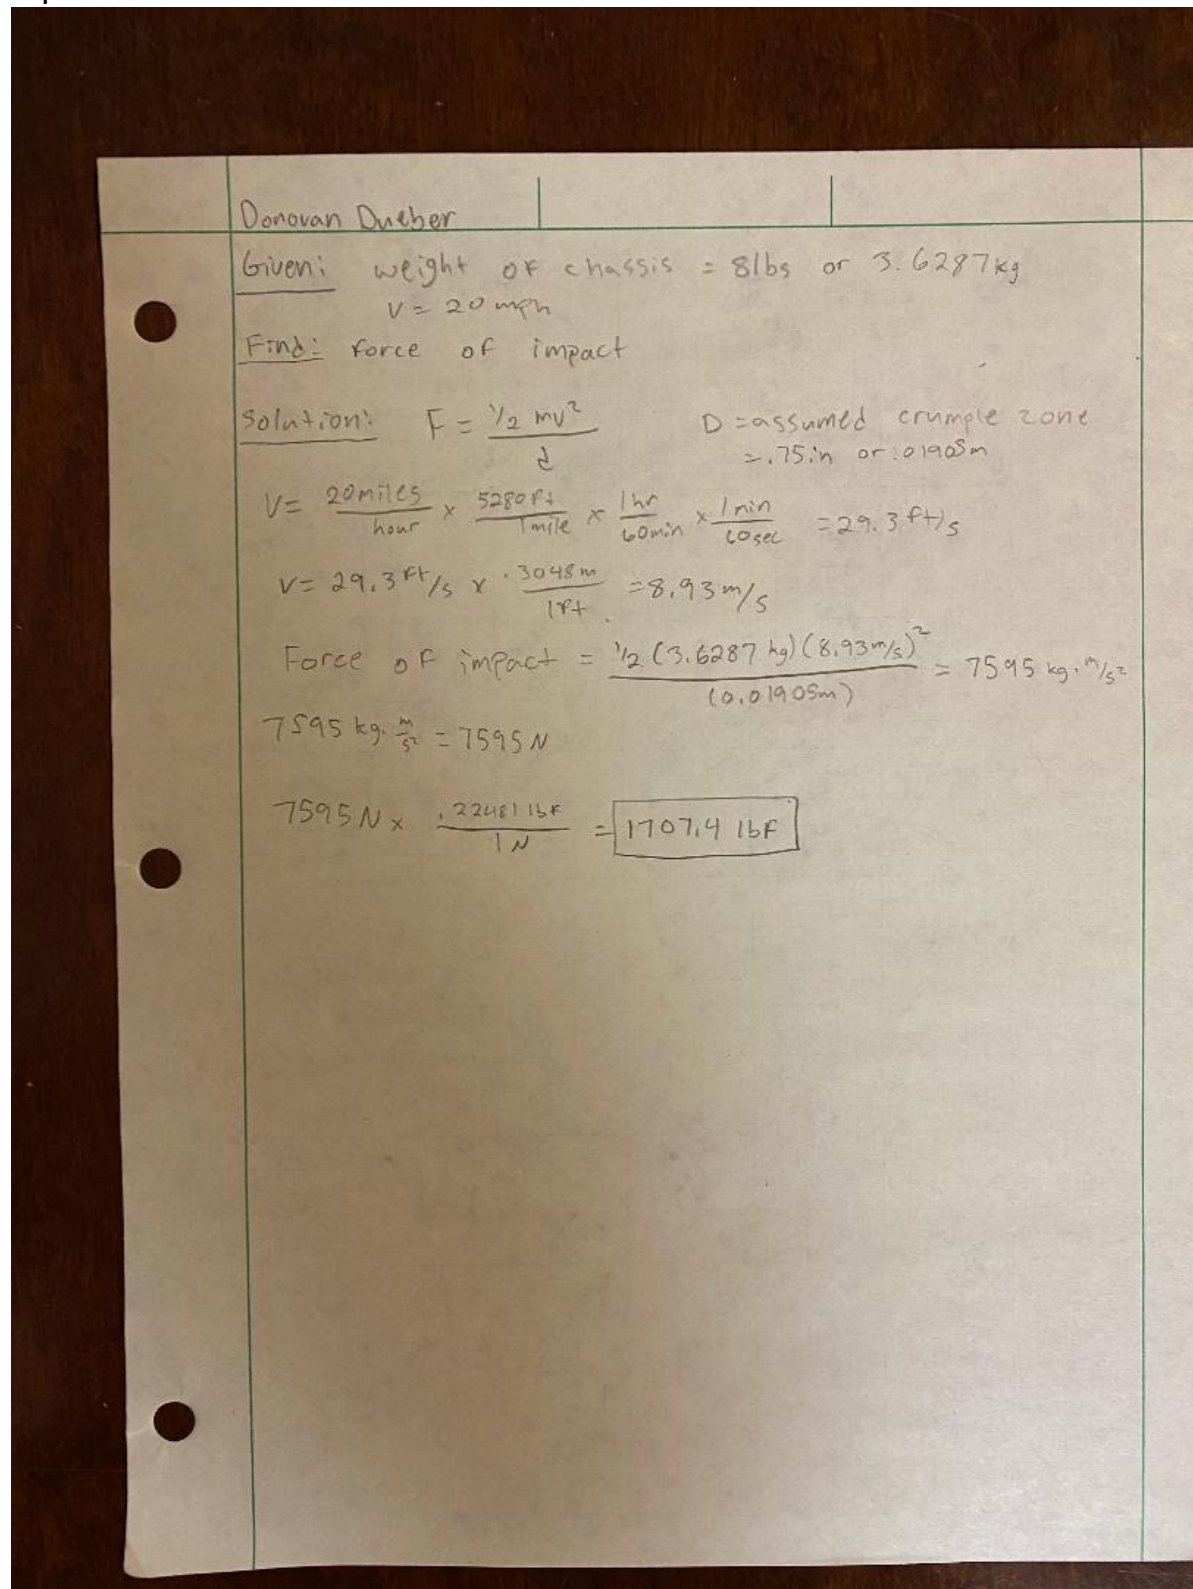 Donovan Dueber
Given: weight of chassis = 8lbs or 3.6287kg
V = 20 mph
Find: force of impact
Solution: F = 1/2 mv² / d    D = assumed crumple zone
= .75in or .01905m
V = 20miles/hour × 5280ft/1mile × 1hr/60min × 1min/60sec = 29.3 ft/s
V = 29.3 ft/s × .3048m/1ft = 8.93 m/s
Force of impact = 1/2 (3.6287 kg)(8.93m/s)² / (0.01905m) = 7595 kg·m/s²
7595 kg·m/s² = 7595 N
7595 N × .22481 lbf/1N = 1707.4 lbf